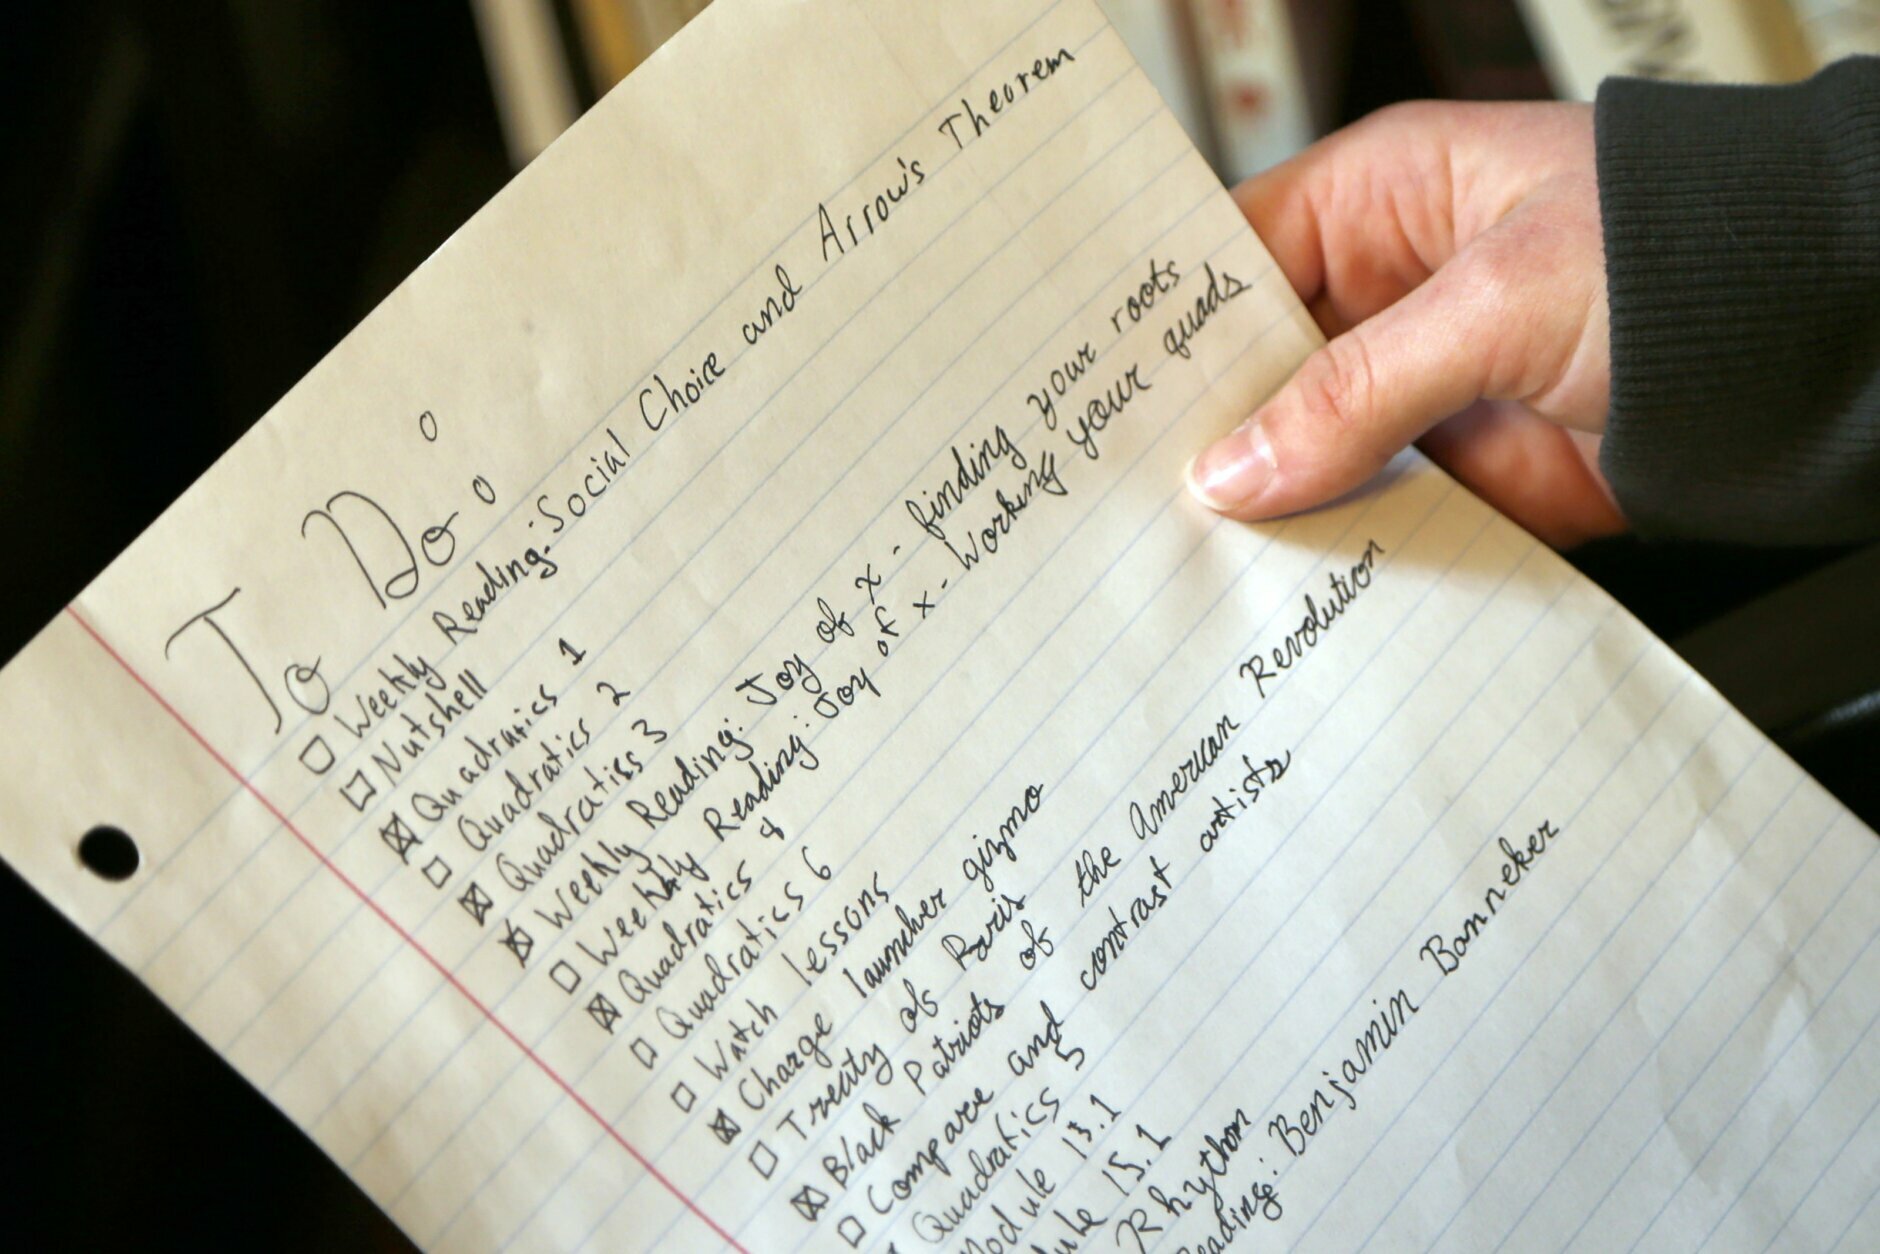 To Do:
☐ Weekly Reading: Social Choice and Arrow's Theorem
☐ Nutshell
☒ Quadratics 1
☐ Quadratics 2
☒ Quadratics 3
☒ Weekly Reading: Joy of x - finding your roots
☐ Weekly Reading: Joy of x - Working your quads
☒ Quadratics 4
☐ Quadratics 6
☐ Watch lessons
☒ Charge launcher gizmo
☐ Treaty of Paris
☒ Black Patriots of the American Revolution
☐ Compare and contrast artists
Quadratics 5
Module 13.1
15.1
Rhythm
Reading: Benjamin Banneker